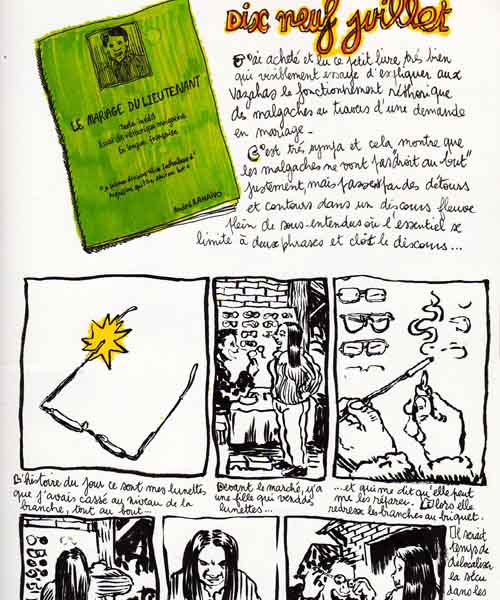 Dix neuf juillet
LE MARIAGE DU LIEUTENANT
Texte inédit
Essai de réthorique malgache
En langue française
André RAHAIVO
J'ai acheté et lu ce petit livre, très bien
qui visiblement essaye d'expliquer aux
Vazahas le fonctionnement réthorique
des malgaches au travers d'une demande
en mariage -
C'est très sympa et cela montre que
les malgaches ne vont pas "droit au but"
justement, mais passent par des détours
et contours dans un discours fleuve
plein de sous-entendus où l'essentiel se
limite à deux phrases et clôt le discours...
L'histoire du jour ce sont mes lunettes
que j'avais cassé au niveau de la
branche, tout au bout...
Devant le marché, y'a
une fille qui vend des
lunettes...
...et qui me dit qu'elle peut
me les réparer. Là elle
redresse les branches au briquet.
Il serait
temps de
délocaliser
la sécu
dans les